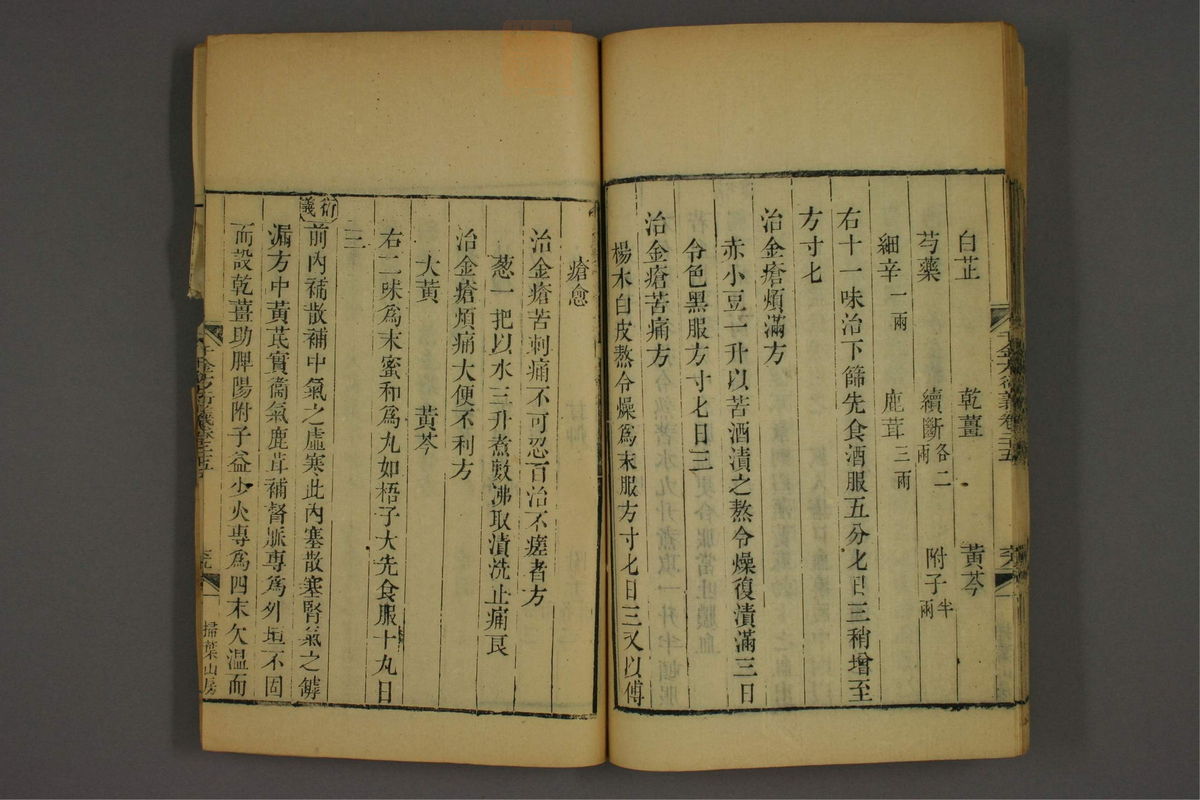 白芷 乾薑 黃芩
芍藥 續斷各二兩 附子半兩
細辛一兩 鹿茸三兩
右十一味治下篩先食酒服五分匕日三稍增至
方寸匕
治金瘡煩滿方
赤小豆一升以苦酒漬之熬令燥復漬滿三日
令色黑服方寸匕日三
治金瘡苦痛方
楊木白皮熬令燥爲末服方寸匕日三又以傅
瘡愈
治金瘡苦刺痛不可忍百治不瘥者方
葱一把以水三升煮數沸取漬洗止痛良
治金瘡煩痛大便不利方
大黃 黃芩
右二味爲末蜜和爲丸如梧子大先食服十丸日
三
衍義 前內補散補中氣之虛寒此內塞散塞腎氣之罅
漏方中黃芪實衞氣鹿茸補督脈專爲外垣不固
而設乾薑助脾陽附子益少火專爲四末欠溫而
千金方衍義卷二十五
掃葉山房